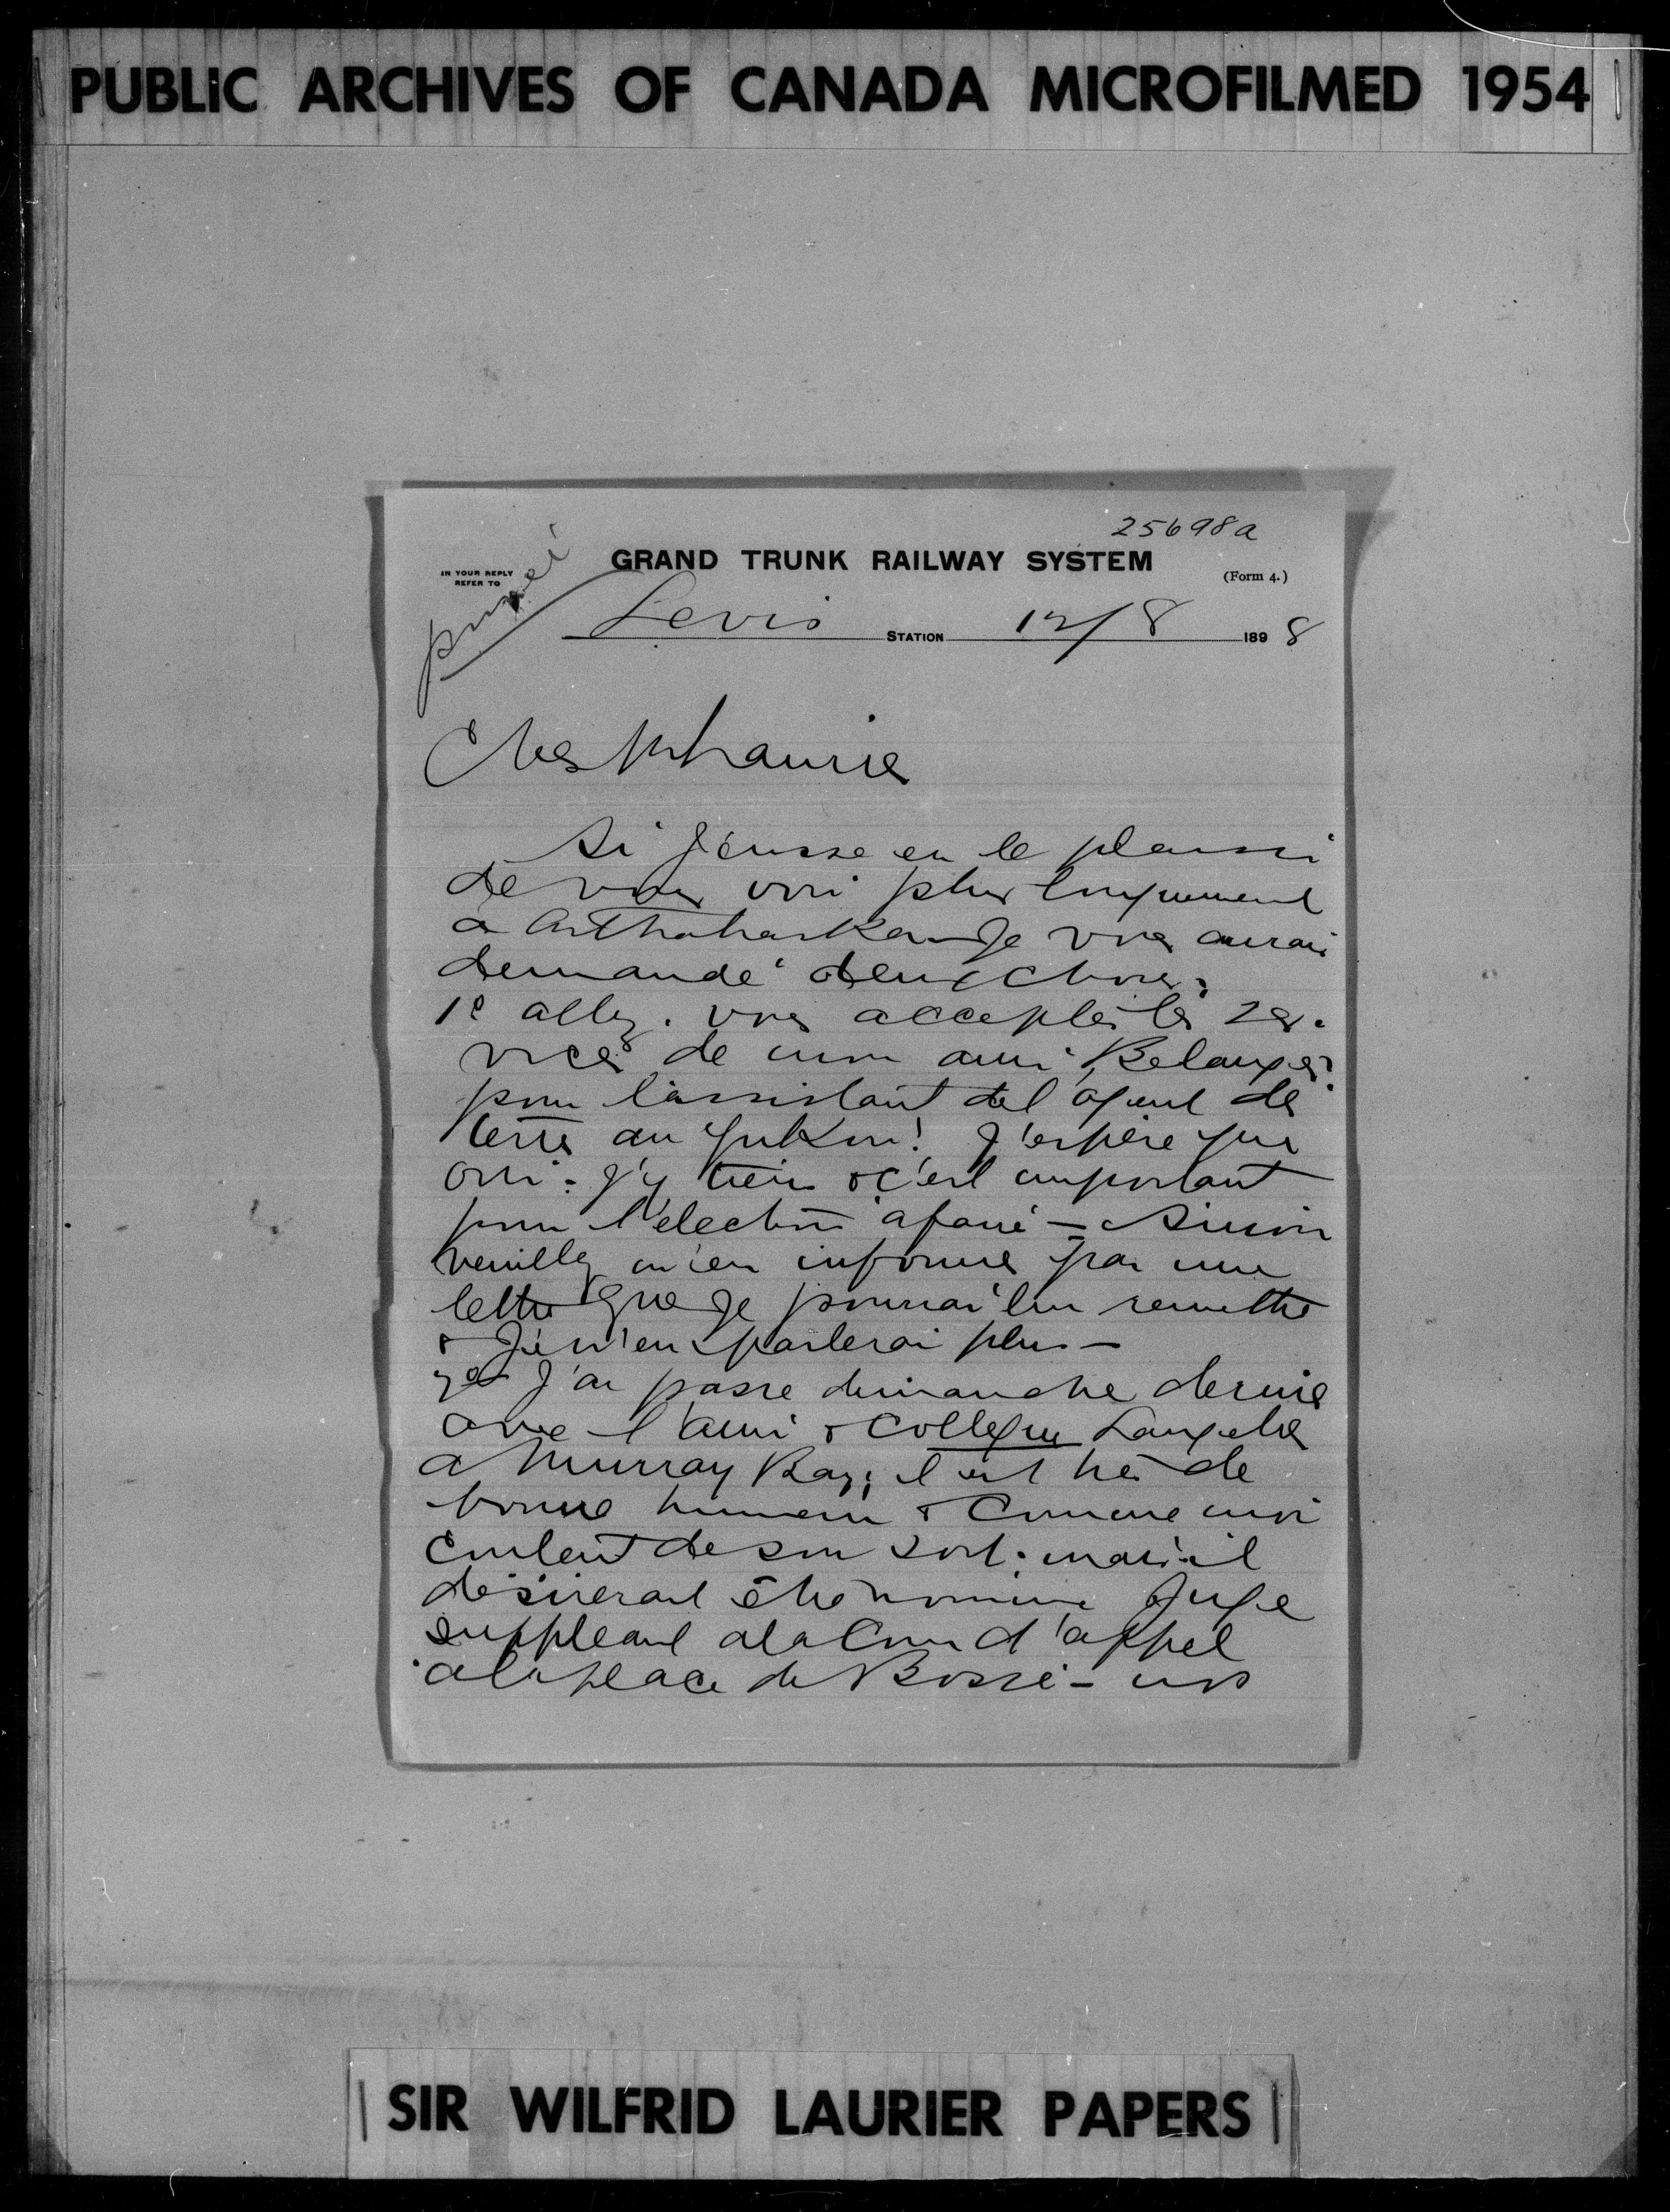 PUBLIC ARCHIVES OF CANADA MICROFILMED 1954
25698a
GRAND TRUNK RAILWAY SYSTEM
IN YOUR REPLY
REFER TO
(Form 4.)
privée
Levis STATION 12/8 1898
Cher Mr Laurier
Si j'eusse eu le plaisir
de vous voir plus longuement
a Arthabaska je vous aurais
demandé deux choses;
1e allez-vous accepter les ser-
vices de mon ami Belanger
pour l'assistant de l'agent des
terres au Yukon! J'espère que
oui - j'y tiens & c'est important
pour l'élection à faire - Sinon
veuillez m'en informer par une
lettre que je pourrai lui remettre
& je n'en parlerai plus -
2e J'ai passé dimanche dernier
avec l'ami & collegue Langelier
a Murray Bay; il est très de
bonne humeur & comme moi
content de son sort; mais il
désirerait être nommé Juge
suppleant a la Cour d'appel
a la place de Bossé - nos
SIR WILFRID LAURIER PAPERS